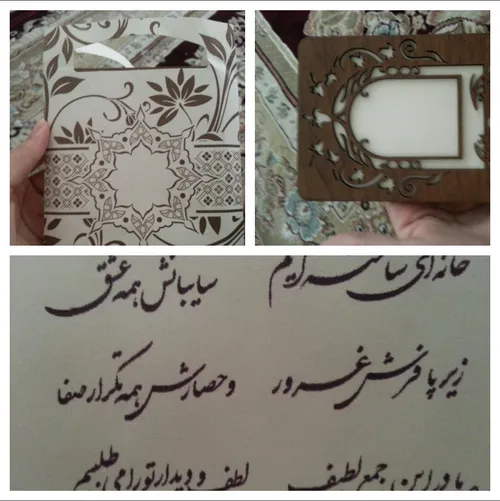 خانه‌ای ساخته‌ایم سایبانش همه عشق
زیر پا فرش غرور و حصارش همه تکرار صفا
ما در این جمع لطیف لطف و دیدار تو را می طلبیم